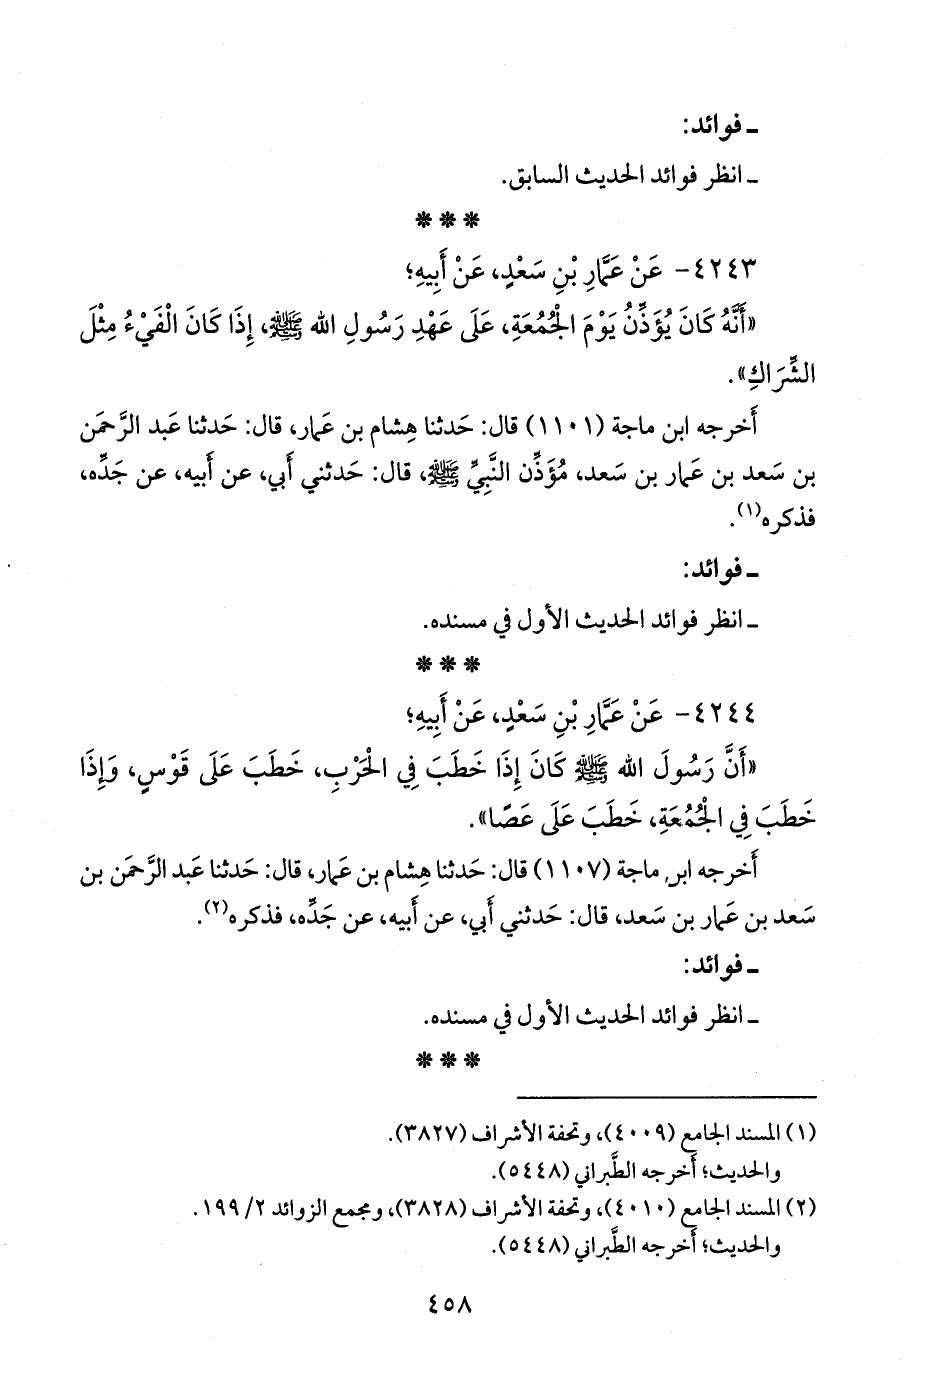 ـ فوائد:
ـ انظر فوائد الحديث السابق.
***
٤٢٤٣- عَنْ عَمَّارِ بْنِ سَعْدٍ، عَنْ أَبِيهِ؛
«أَنَّهُ كَانَ يُؤَذِّنُ يَوْمَ الْجُمُعَةِ، عَلَى عَهْدِ رَسُولِ الله ﷺ، إِذَا كَانَ الْفَيْءُ مِثْلَ
الشِّرَاكِ».
أَخرجه ابن ماجة (١١٠١) قال: حَدثنا هِشام بن عَمار، قال: حَدثنا عَبد الرَّحمَن
بن سَعد بن عَمار بن سَعد، مُؤَذِّن النَّبِيِّ ﷺ، قال: حَدثني أَبي، عن أَبيه، عن جَدِّه،
فذكره(١).
ـ فوائد:
ـ انظر فوائد الحديث الأول في مسنده.
***
٤٢٤٤- عَنْ عَمَّارِ بْنِ سَعْدٍ، عَنْ أَبِيهِ؛
«أَنَّ رَسُولَ الله ﷺ كَانَ إِذَا خَطَبَ فِي الْحَرْبِ، خَطَبَ عَلَى قَوْسٍ، وَإِذَا
خَطَبَ فِي الْجُمُعَةِ، خَطَبَ عَلَى عَصًا».
أَخرجه ابن ماجة (١١٠٧) قال: حَدثنا هِشام بن عَمار، قال: حَدثنا عَبد الرَّحمَن بن
سَعد بن عَمار بن سَعد، قال: حَدثني أَبي، عن أَبيه، عن جَدِّه، فذكره(٢).
ـ فوائد:
ـ انظر فوائد الحديث الأول في مسنده.
***
(١) المسند الجامع (٤٠٠٩)، وتحفة الأشراف (٣٨٢٧).
والحديث؛ أخرجه الطَّبراني (٥٤٤٨).
(٢) المسند الجامع (٤٠١٠)، وتحفة الأشراف (٣٨٢٨)، ومجمع الزوائد ٢/ ١٩٩.
والحديث؛ أخرجه الطَّبراني (٥٤٤٨).
٤٥٨